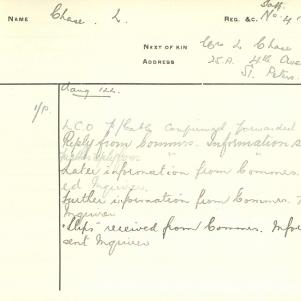 Staff.
NAME Chase. L. REG. &c. No. 4
NEXT OF KIN Mrs L Chase
ADDRESS 25.A. 4th Ave
St. Peters.
I/P. L.C.O. Confirmed forwarded
Reply from Commrs. Information s
Later information from Commrs.
ed Inquirer.
Further information from Commrs.
Inquirer
"Slips" received from Commrs. Infor
sent Inquirer